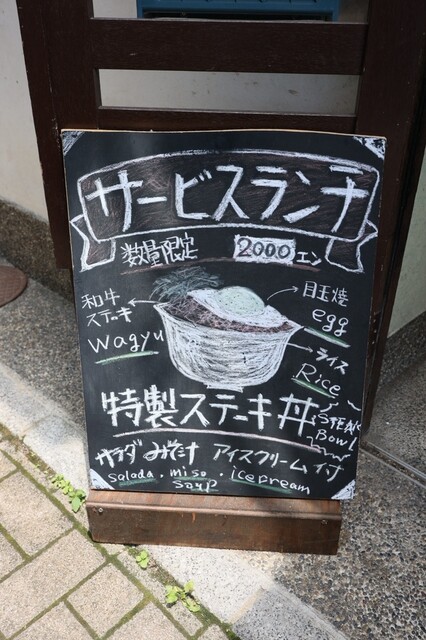 サービスランチ
数量限定 2000エン
和牛
ステーキ
Wagyu
目玉焼
egg
ライス
Rice
特製ステーキ丼
STEAK
BowL
サラダ みそ汁 アイスクリーム付
Salada・miso soup・icepream